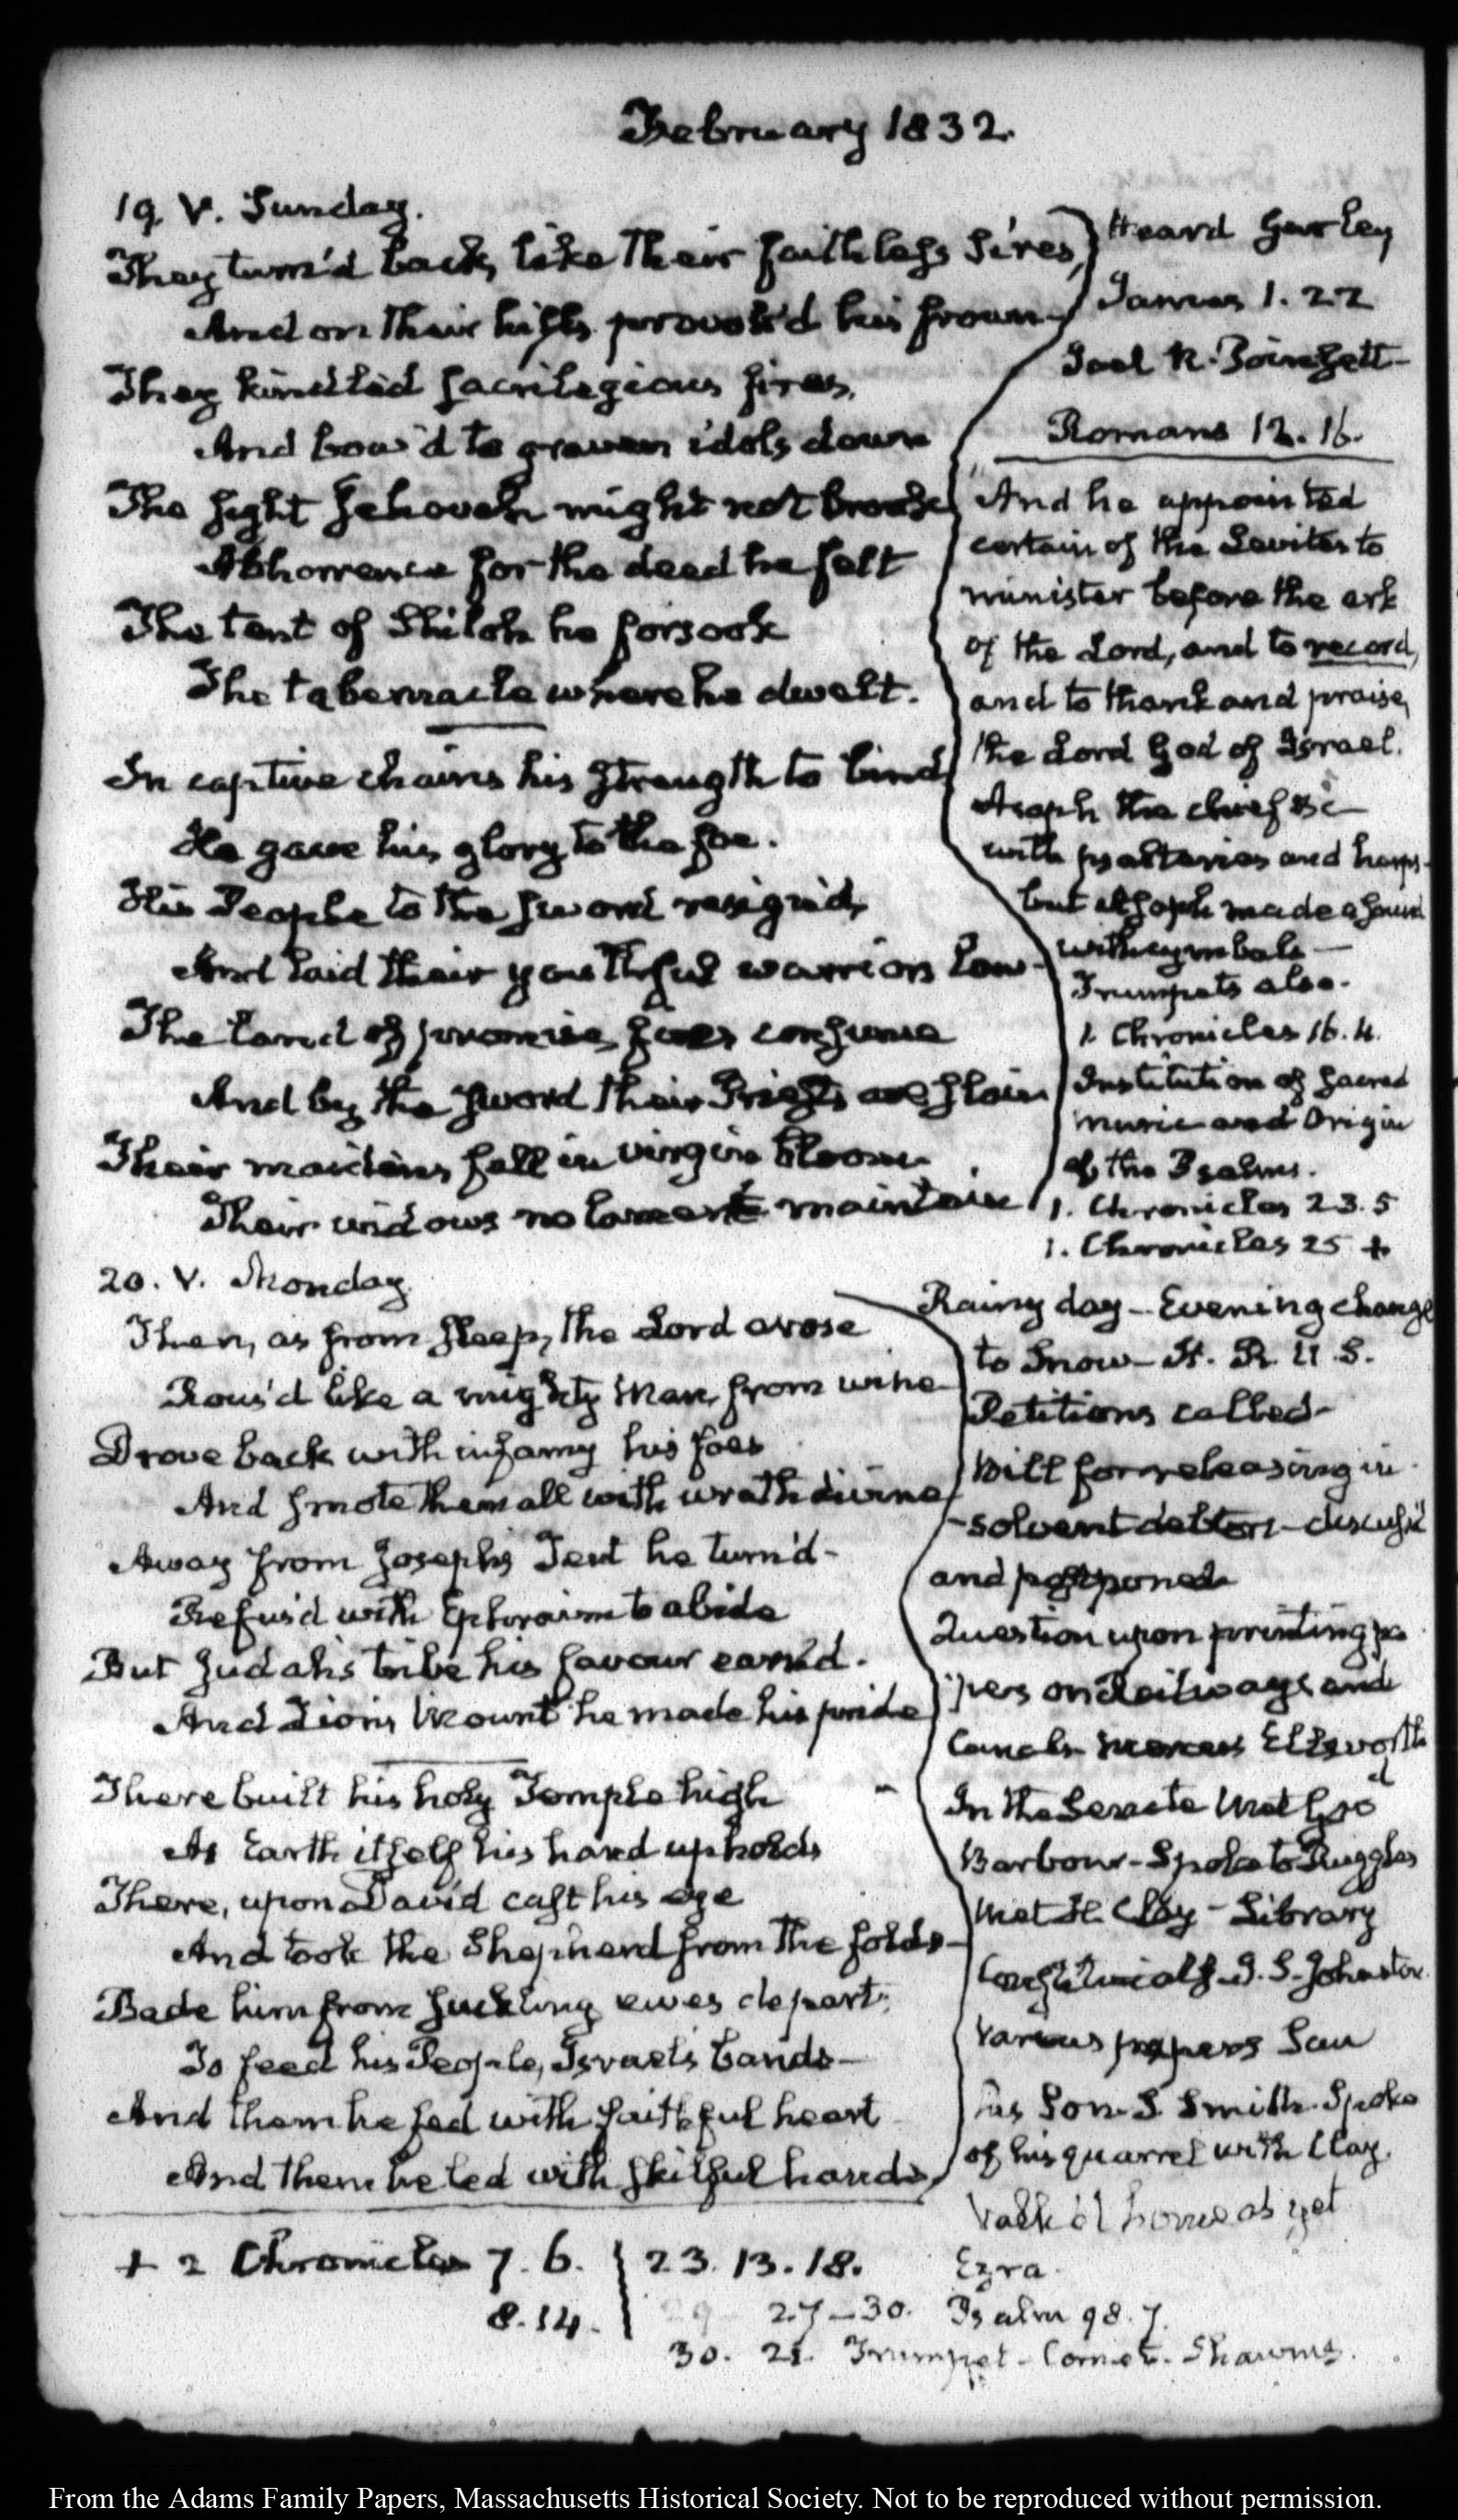 February 1832.
19. V. Sunday.
They turn'd back, like their faithless Sires,
And on their hills provok'd his frown—
They kindled sacrilegious fires,
And bow'd to graven idols down
The sight Jehovah might not brook
Abhorrence for the deed he felt
The tent of Shiloh he forsook
The tabernacle where he dwelt.
In captive chains his strength to bind
He gave his glory to the foe.
His People to the sword resign'd,
And laid their youthful warriors low—
The land of promise foes consume
And by the sword their Priests are slain
Their maidens fall in virgin bloom
Their widows no lament maintain
Heard Gurley
James 1. 22
Joel R. Poinsett—
Romans 12. 16.
And he appointed
certain of the Levites to
minister before the ark
of the Lord, and to record,
and to thank and praise,
the Lord God of Israel.
Asaph the chief &c
with psalteries and harps—
but Asaph made a sound
with cymbals—
Trumpets also.
1. Chronicles 16. 4.
Institution of sacred
music and Origin
of the Psalms.
1. Chronicles 23. 5
1. Chronicles 25 +
20. V. Monday
Then, as from sleep, the Lord arose
Rous'd like a mighty Man, from wine
Drove back with infamy his foes
And smote them all with wrath divine
Away from Joseph's Tent he turn'd—
Refus'd with Ephraim to abide
But Judah's tribe his favour earn'd.
And Zion's Mount he made his pride
There built his holy Temple high
As Earth itself his hand upholds
There, upon David cast his eye
And took the Shepherd from the folds—
Bade him from suckling ewes depart,
To feed his People, Israel's bands—
And them he fed with faithful heart
And them he led with skilful hands,
Rainy day—Evening change
to Snow—H. R. U. S.
Petitions called—
Bill for releasing in
-solvent debtors—discuss'd
and postponed
Question upon printing pa
pers on Railways and
Canals Ellsworth
In the Senate Met
Barbour—Spoke to Ruggles
Met H. Clay—Library
J. S. Johnston
Various papers Saw
his Son. S. Smith. Spoke
of his quarrel with Clay.
Walk'd home as yet
+ 2 Chronicles 7. 6.
8. 14.
23. 13. 18.
29 27—30.
30. 21. Trumpet—Cornet—Shawms.
Ezra.
Psalm 98. 7.
From the Adams Family Papers, Massachusetts Historical Society. Not to be reproduced without permission.